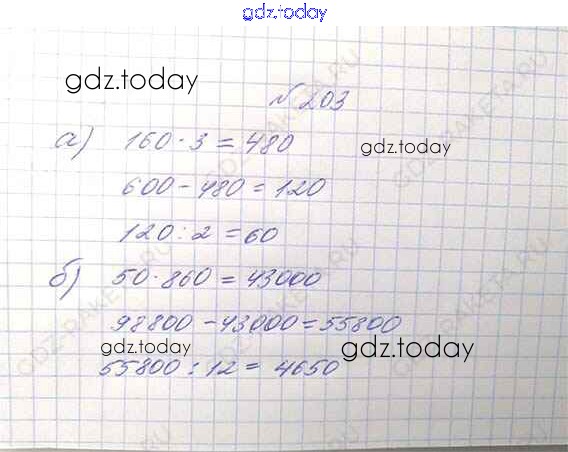 gdz.today
gdz.today
№ 203
а) 160 · 3 = 480
gdz.today
600 - 480 = 120
120 : 2 = 60
б) 50 · 860 = 43000
98800 - 43000 = 55800
gdz.today
gdz.today
55800 : 12 = 4650
GDZ-RAKETA.RU
GDZ-RAKETA.RU